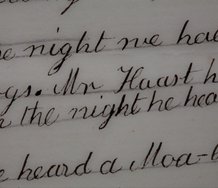 e night we had
ys. Mr Haast h
n the night he hea
e heard a Moa-